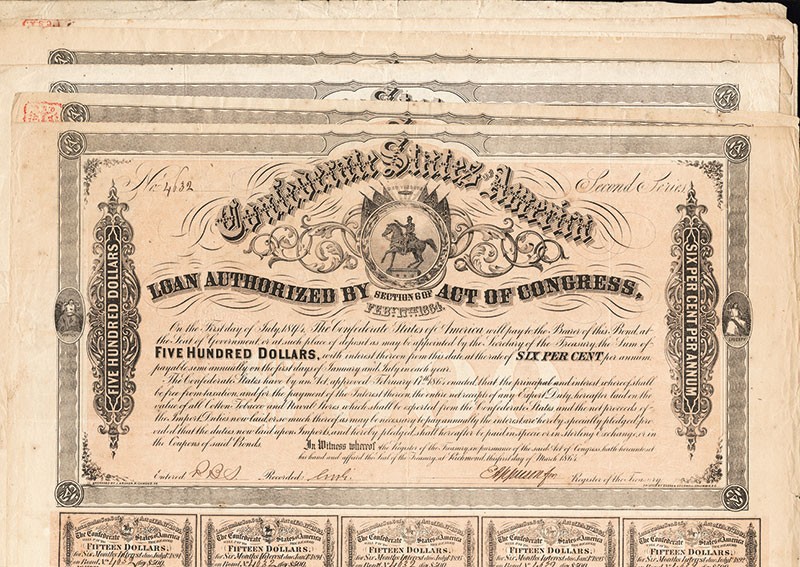 No. 4632
Second Series
Confederate States America
LOAN AUTHORIZED BY SECTION 6 OF ACT OF CONGRESS,
FEBy. 17TH. 1864.
FIVE HUNDRED DOLLARS
SIX PER CENT PER ANNUM
On the First day of July 1894, The Confederate States of America will pay to the Bearer of this Bond, at
the Seat of Government or at such place of deposit as may be appointed by the Secretary of the Treasury, the Sum of
FIVE HUNDRED DOLLARS, with interest thereon from this date at the rate of SIX PER CENT per annum
payable semi annually on the first days of January and July in each year.
The Confederate States have by an Act approved February 17th. 1864, enacted that the principal and interest whereof shall
be free from taxation, and for the payment of the Interest thereon, the entire net receipts of any Export Duty, hereafter laid on the
value of all Cotton Tobacco and Naval Stores which shall be exported from the Confederate States and the net proceeds of
the Import Duties now laid, or so much thereof as may be necessary to pay annually the interest are hereby specially pledged, pro-
vided that the duties now laid upon Imports, and hereby pledged, shall hereafter be paid in specie or in Sterling Exchange, or in
the Coupons of said Bonds.
In Witness whereof the Register of the Treasury, in pursuance of the said Act of Congress, hath hereunto set
his hand and affixed the Seal of the Treasury, at Richmond, this first day of March 1864
Entered Recorded Register of the Treasury.
The Confederate States of America
FIFTEEN DOLLARS,
for Six Months Interest due
on Bond No. 4632 for $500.
The Confederate States of America
FIFTEEN DOLLARS,
for Six Months Interest due
on Bond No. 4632 for $500.
The Confederate States of America
FIFTEEN DOLLARS,
for Six Months Interest due
on Bond No. 4632 for $500.
The Confederate States of America
FIFTEEN DOLLARS,
for Six Months Interest due
on Bond No. 4632 for $500.
The Confederate States of America
FIFTEEN DOLLARS,
for Six Months Interest due
on Bond No. 4632 for $500.